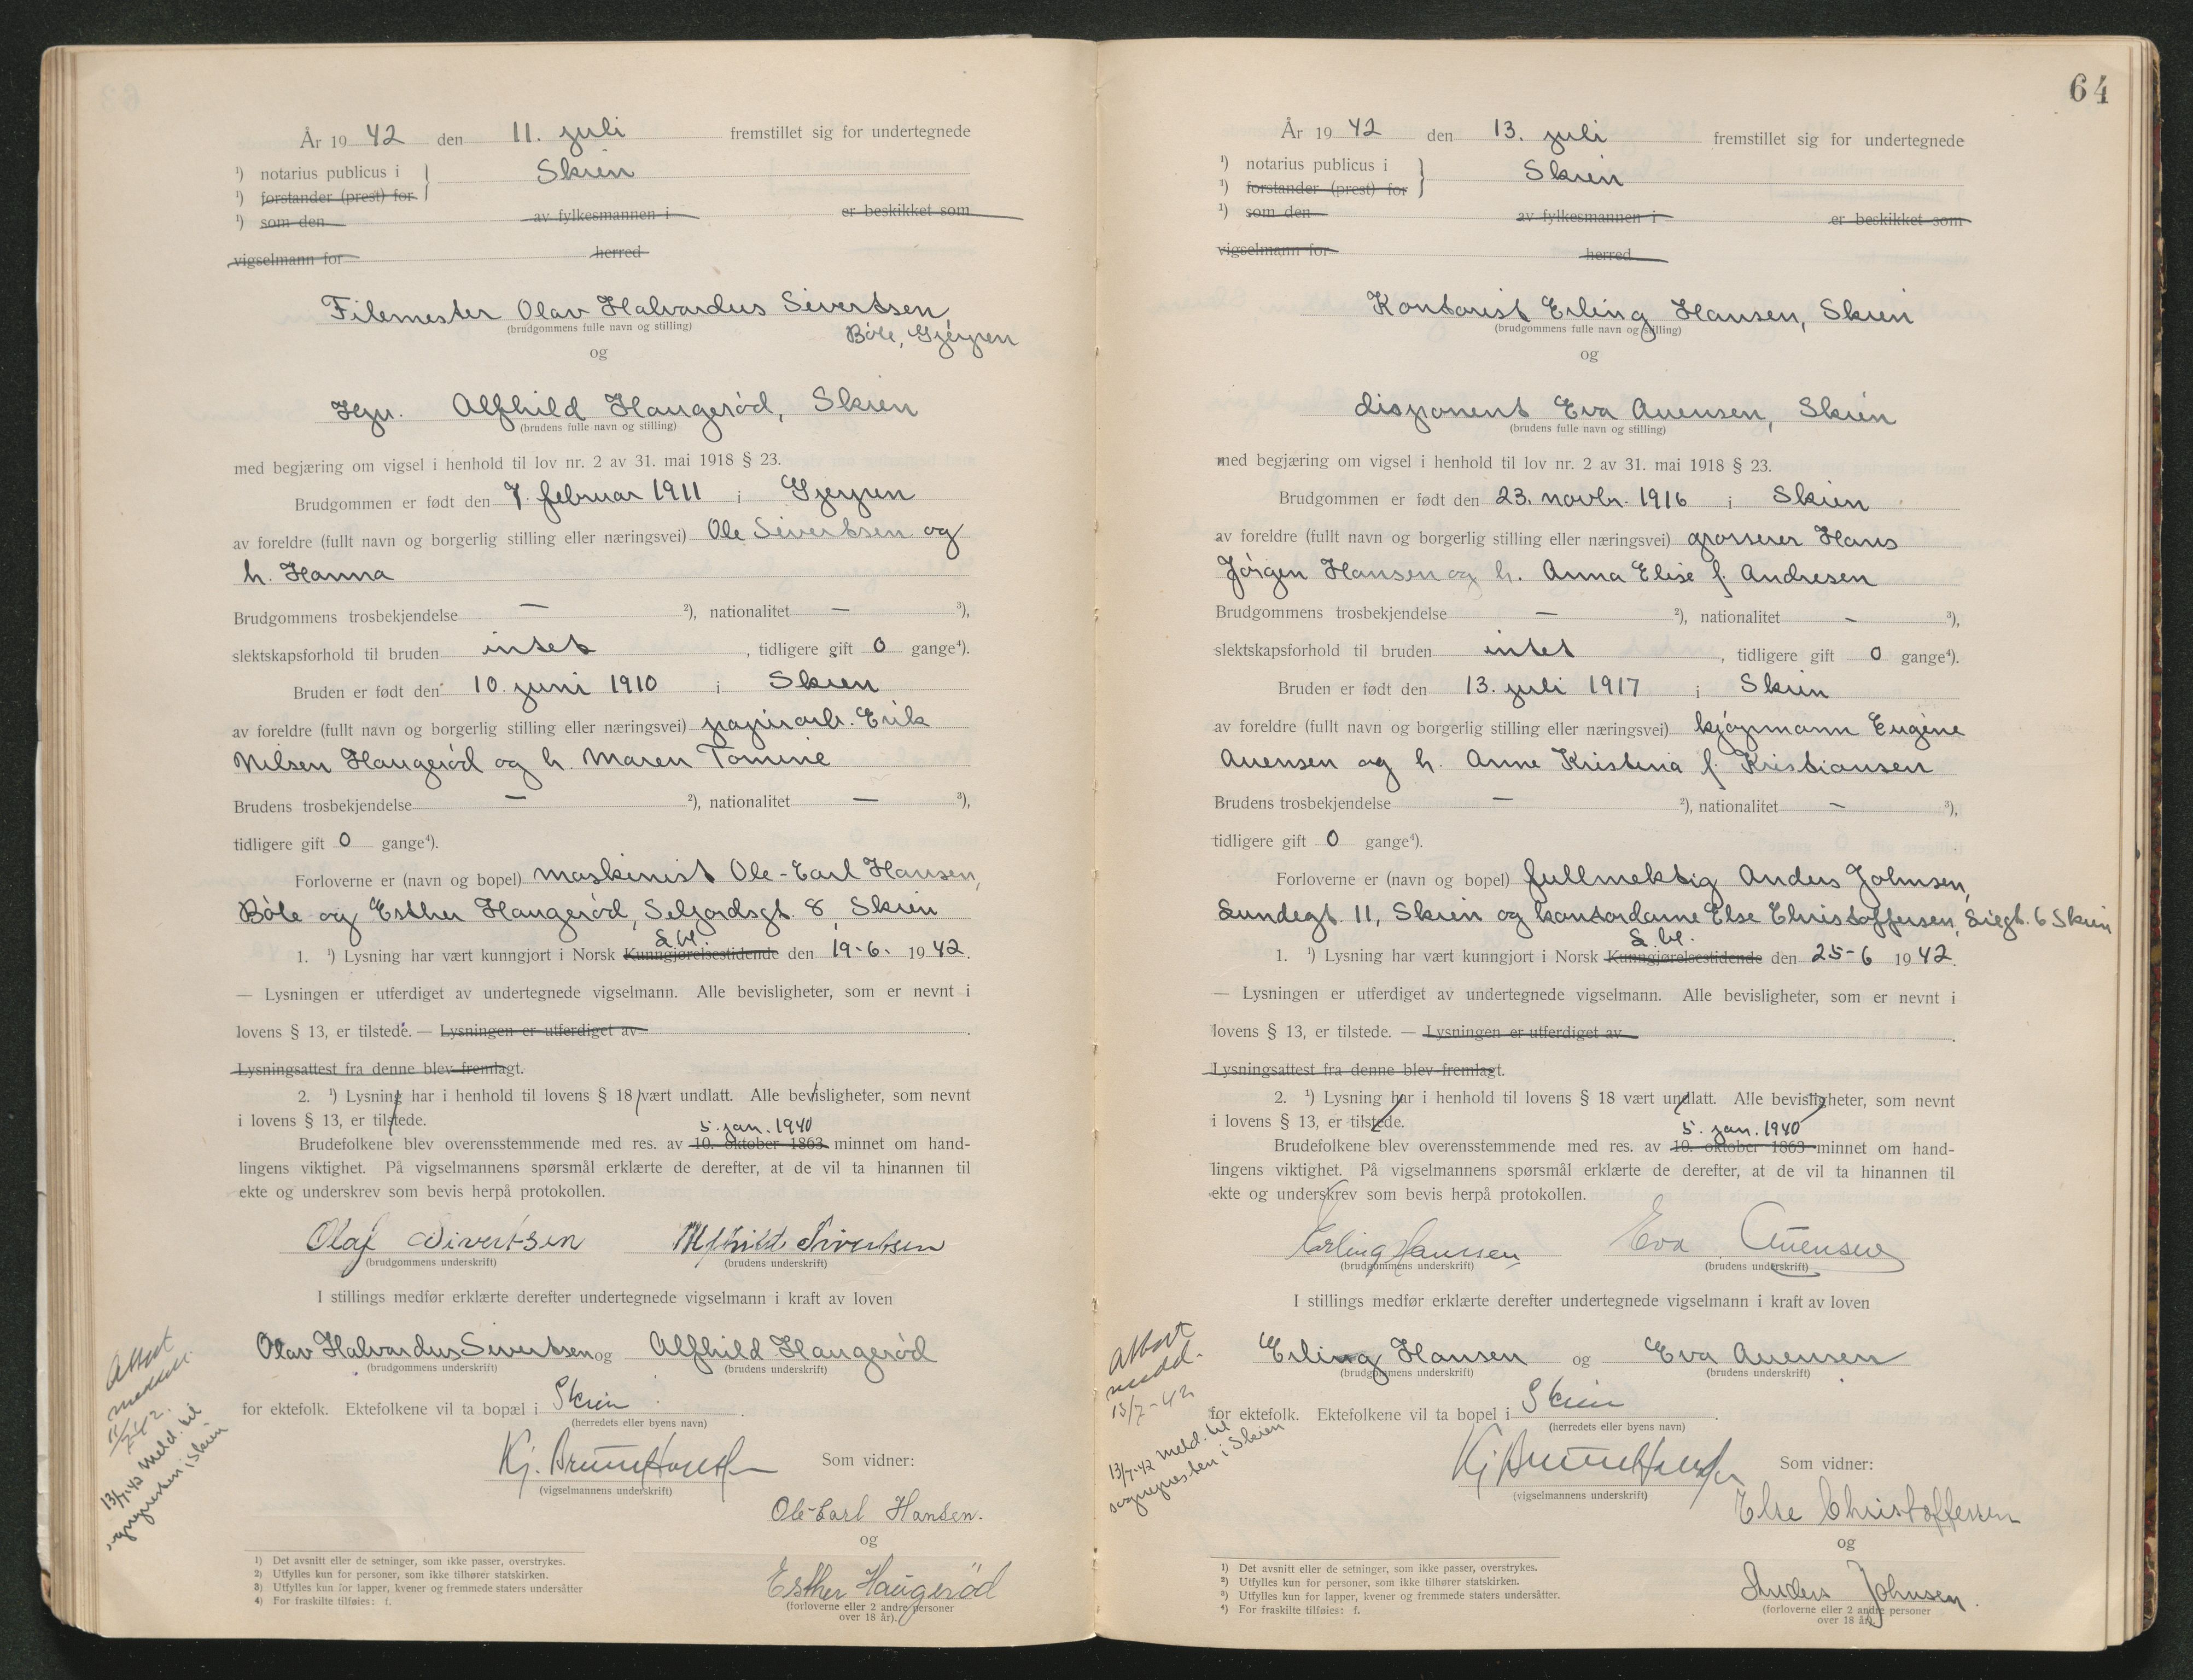 År 19 42 den 11. juli fremstillet sig for undertegnede
¹) notarius publicus i } Skien
¹) forstander (prest) for
¹) som den av fylkesmannen i er beskikket som
vigselmann for herred
Filemester Olav Halvardus Sivertsen,
(brudgommens fulle navn og stilling)
Bøle, Gjerpen
og
Hgr. Alfhild Haugerød, Skien
(brudens fulle navn og stilling)
med begjæring om vigsel i henhold til lov nr. 2 av 31. mai 1918 § 23.
Brudgommen er født den 7. februar 1911 i Gjerpen
av foreldre (fullt navn og borgerlig stilling eller næringsvei) Ole Sivertsen og
h. Hanna
Brudgommens trosbekjendelse — ²), nationalitet — ³),
slektskapsforhold til bruden intet, tidligere gift 0 gange⁴).
Bruden er født den 10. juni 1910 i Skien
av foreldre (fullt navn og borgerlig stilling eller næringsvei) papirarb. Erik
Nilsen Haugerød og h. Maren Tomine
Brudens trosbekjendelse — ²), nationalitet — ³),
tidligere gift 0 gange⁴).
Forloverne er (navn og bopel) maskinist Ole-Carl Hansen,
Bøle og Esther Haugerød, Seljordsgt. 8, Skien
S. bl.
1. ¹) Lysning har vært kunngjort i Norsk Kunngjørelsestidende den 19-6. 1942.
— Lysningen er utferdiget av undertegnede vigselmann. Alle bevisligheter, som er nevnt i
lovens § 13, er tilstede. — Lysningen er utferdiget av .
Lysningsattest fra denne blev fremlagt.
2. ¹) Lysning har i henhold til lovens § 18 vært undlatt. Alle bevisligheter, som nevnt
i lovens § 13, er tilstede.
5. jan. 1940
Brudefolkene blev overensstemmende med res. av 10. oktober 1863 minnet om hand-
lingens viktighet. På vigselmannens spørsmål erklærte de derefter, at de vil ta hinannen til
ekte og underskrev som bevis herpå protokollen.
Olaf Sivertsen Alfhild Sivertsen
(brudgommens underskrift) (brudens underskrift)
I stillings medfør erklærte derefter undertegnede vigselmann i kraft av loven
Olav Halvardus Sivertsen og Alfhild Haugerød
(brudgommens underskrift) (brudens underskrift)
for ektefolk. Ektefolkene vil ta bopæl i Skien .
(herredets eller byens navn)
Kj. Som vidner:
(vigselmannens underskrift)
Ole-Carl Hansen.
og
Esther Haugerød
(forloverne eller 2 andre personer
over 18 år).
Attest
meddelt
11/7-42.
13/7-42 meld. til
sognepresten i Skien
1) Det avsnitt eller de setninger, som ikke passer, overstrykes.
2) Utfylles kun for personer, som ikke tilhører statskirken.
3) Utfylles kun for lapper, kvener og fremmede staters undersåtter
4) For fraskilte tilføies: f.
64
År 19 42 den 13. juli fremstillet sig for undertegnede
¹) notarius publicus i } Skien
¹) forstander (prest) for
¹) som den av fylkesmannen i er beskikket som
vigselmann for herred
Kontorist Erling Hansen, Skien
(brudgommens fulle navn og stilling)
og
disponent Eva Auensen, Skien
(brudens fulle navn og stilling)
med begjæring om vigsel i henhold til lov nr. 2 av 31. mai 1918 § 23.
Brudgommen er født den 23. novbr. 1916 i Skien
av foreldre (fullt navn og borgerlig stilling eller næringsvei) grosserer Hans
Jørgen Hansen og h. Anna Elise f. Andresen
Brudgommens trosbekjendelse — ²), nationalitet - ³),
slektskapsforhold til bruden intet, tidligere gift 0 gange⁴).
Bruden er født den 13. juli 1917 i Skien
av foreldre (fullt navn og borgerlig stilling eller næringsvei) kjøpmann Eugène
Auensen og h. Anne Kristina f. Kristiansen
Brudens trosbekjendelse — ²), nationalitet — ³),
tidligere gift 0 gange⁴).
Forloverne er (navn og bopel) fullmektig Anders Johnsen,
Lundegt. 11, Skien og kontordame Else Christoffersen, Liegt. 6 Skien
S. bl.
1. ¹) Lysning har vært kunngjort i Norsk Kunngjørelsestidende den 25-6 1942.
— Lysningen er utferdiget av undertegnede vigselmann. Alle bevisligheter, som er nevnt i
lovens § 13, er tilstede. — Lysningen er utferdiget av .
Lysningsattest fra denne blev fremlagt.
2. ¹) Lysning har i henhold til lovens § 18 vært undlatt. Alle bevisligheter, som nevnt
i lovens § 13, er tilstede.
5. jan. 1940
Brudefolkene blev overensstemmende med res. av 10. oktober 1863 minnet om hand-
lingens viktighet. På vigselmannens spørsmål erklærte de derefter, at de vil ta hinannen til
ekte og underskrev som bevis herpå protokollen.
Erling Hanssen Eva Auensen
(brudgommens underskrift) (brudens underskrift)
I stillings medfør erklærte derefter undertegnede vigselmann i kraft av loven
Erling Hansen og Eva Auensen
(brudgommens underskrift) (brudens underskrift)
for ektefolk. Ektefolkene vil ta bopel i Skien .
(herredets eller byens navn)
Kj Som vidner:
(vigselmannens underskrift)
Else Christoffersen
og
Anders Johnsen.
(forloverne eller 2 andre personer
over 18 år).
Attest
medd.
13/7-42
13/7-42 meld. til
sognepresten i Skien
1) Det avsnitt eller de setninger, som ikke passer, overstrykes.
2) Utfylles kun for personer, som ikke tilhører statskirken.
3) Utfylles kun for lapper, kvener og fremmede staters undersåtter.
4) For fraskilte tilføies: f.